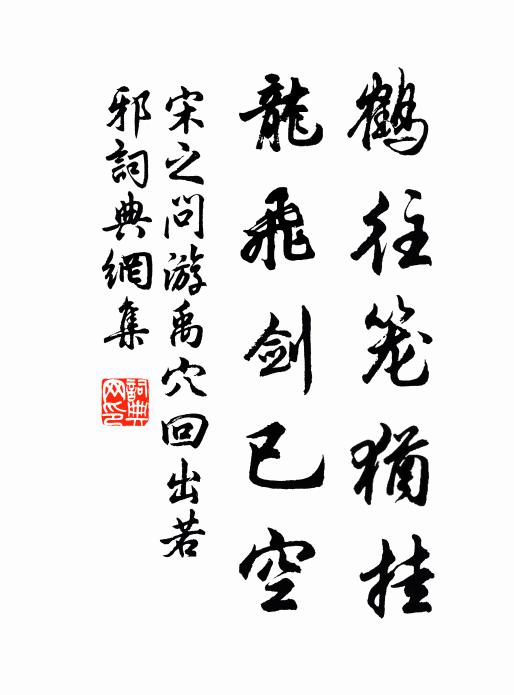 鶴往笼猶挂
龍飛剑已空
宋之问游禹穴回出若
邪詞典網集
詞典网印